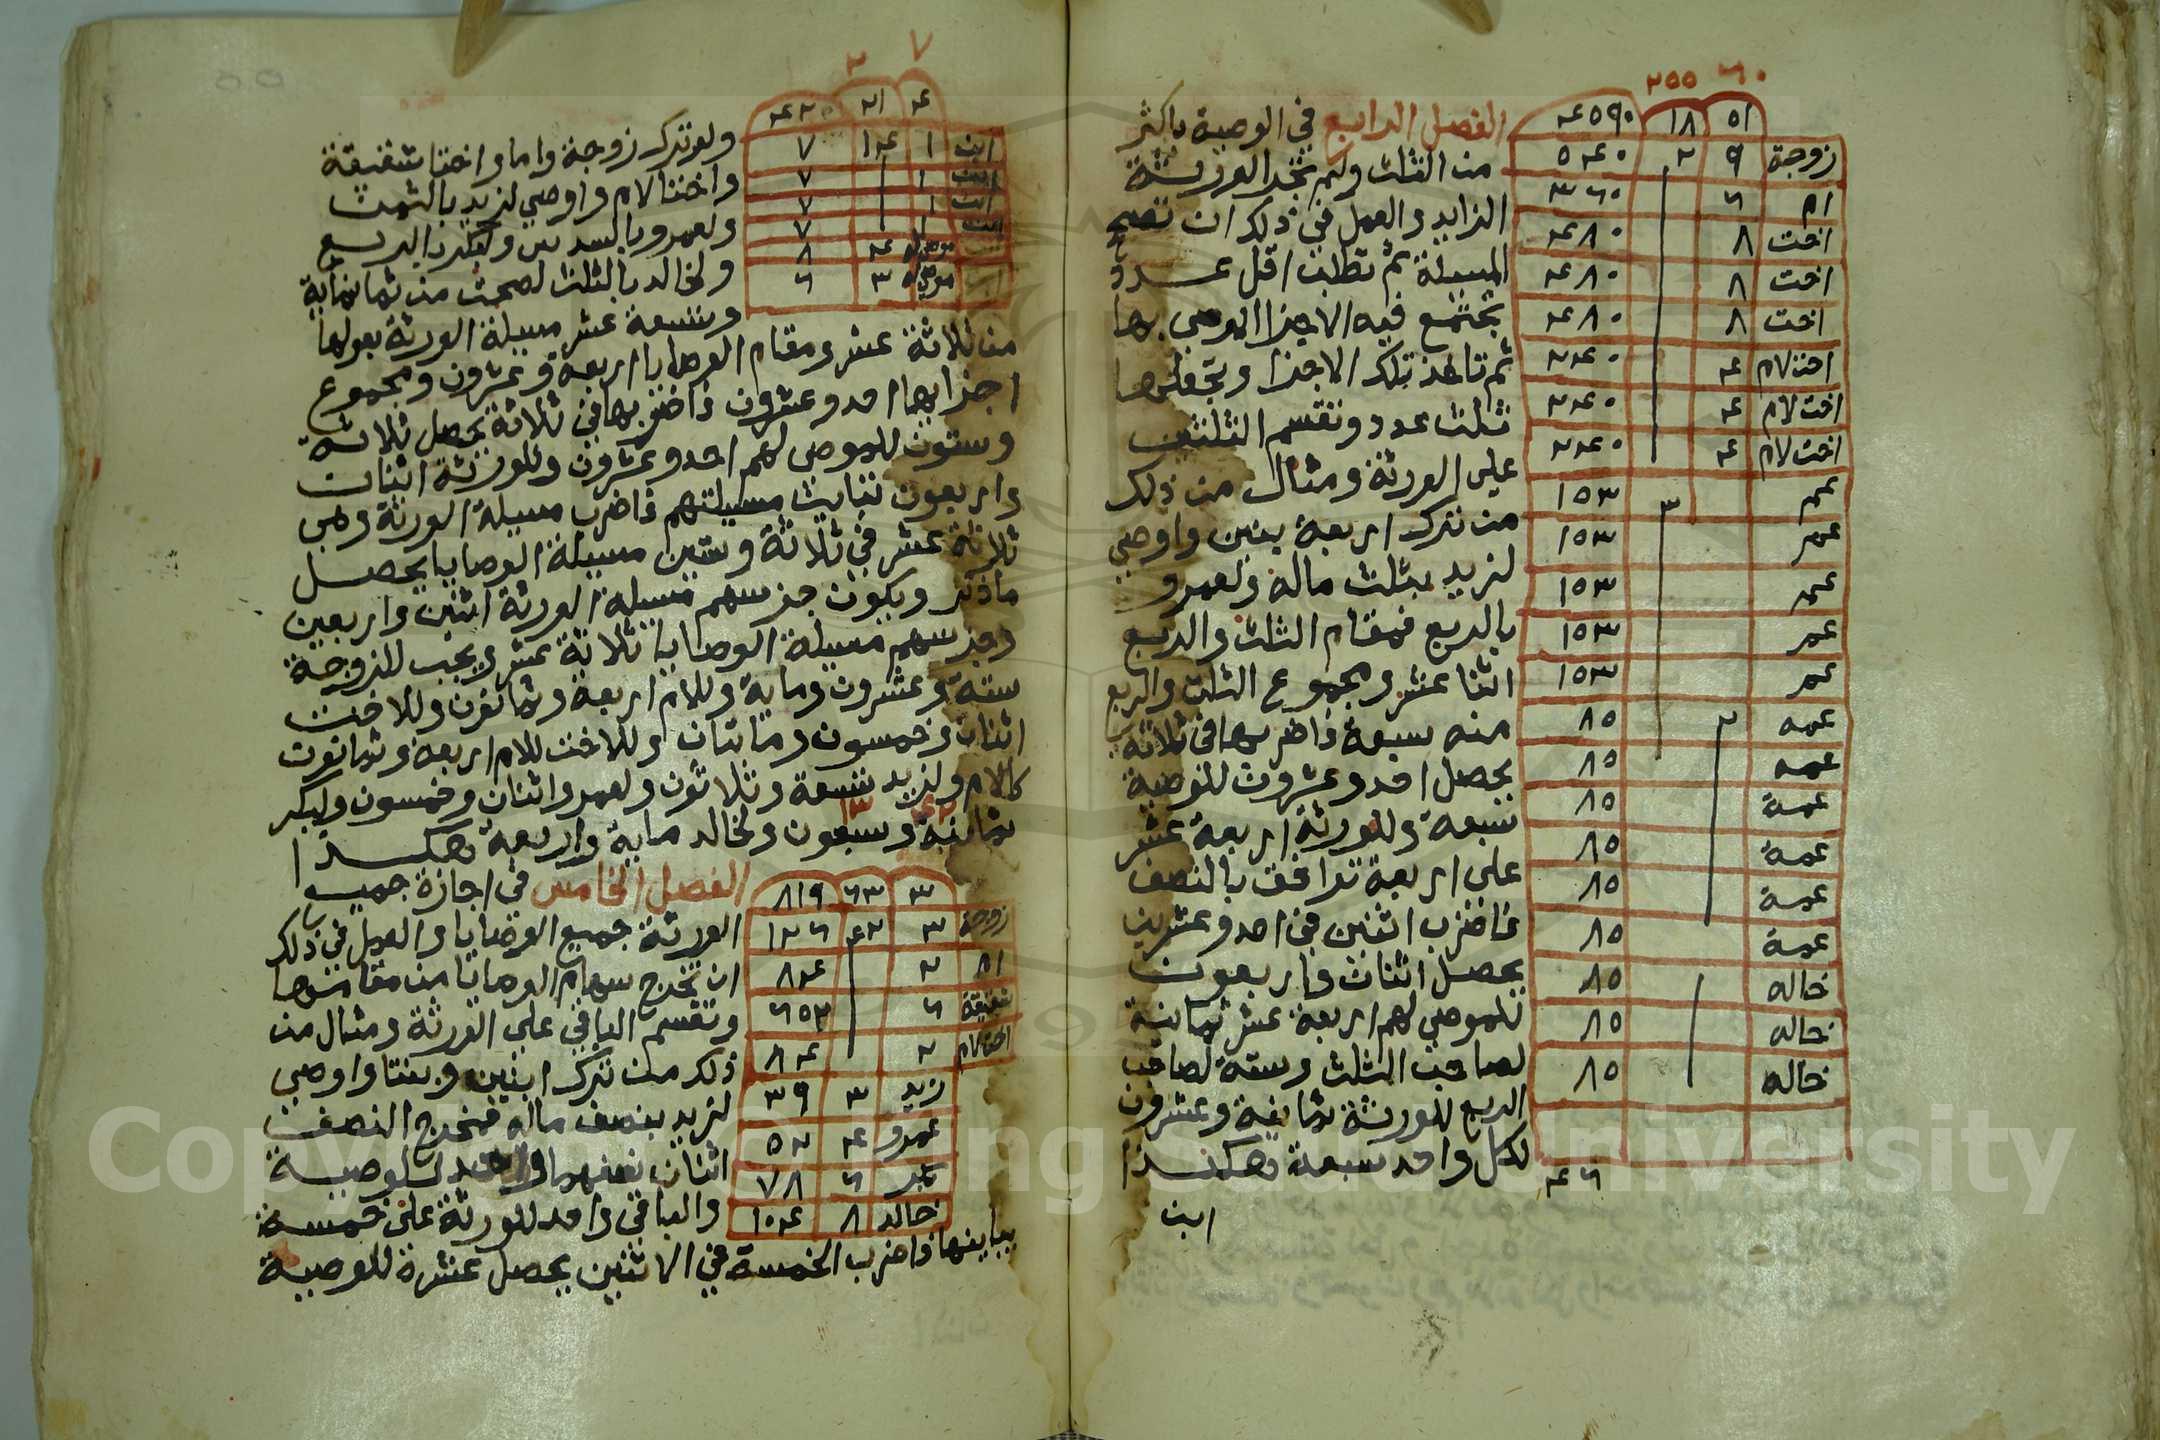 ٢٥٥ ٦٠
٥١ ١٨ ٤٥٩٠
زوجة ٩ ٢ ٥٤٠
ام ٦ ٣٦٠
اخت ٨ ٤٨٠
اخت ٨ ٤٨٠
اخت ٨ ٤٨٠
اخت لام ٤ ٢٤٠
اخت لام ٤ ٢٤٠
اخت لام ٤ ٢٤٠
عم ٣ ١٥٣
عم ١٥٣
عم ١٥٣
عم ١٥٣
عم ١٥٣
عمه ٢ ٨٥
عمه ٨٥
عمة ٨٥
عمة ٨٥
عمة ٨٥
عمة ٨٥
خاله ١ ٨٥
خاله ٨٥
خاله ٨٥
٤٦
الفصل الرابع في الوصية باكثر
من الثلث ولم تجز الورثة
الزايد والعمل في ذلك ان تصحح
المسيلة ثم تطلب اقل عدد
يجتمع فيه الاجزا الموصى بها
ثم تاخذ تلك الاجزا وتجعلها
ثلث عدد وتقسم الثلثين
على الورثة ومثال من ذلك
من ترك اربعة بنين واوصى
لزيد بثلث ماله ولعمرو
بالربع فمقام الثلث والربع
اثنا عشر ومجموع الثلث والربع
منه سبعة فاضربها في ثلاثة
يحصل احد وعشرون للوصية
سبعة وللورثة اربعة عشر
على اربعة توافق بالنصف
فاضرب اثنين في احد وعشرين
يحصل اثنان واربعون
للموصى لهم اربعة عشر ثمانية
لصاحب الثلث وستة لصاحب
الربع للورثة ثمانية وعشرون
لكل واحد سبعة وهكذا
ابن
٧ ٢
٤ ٢١ ٤٢
ابن ١ ١٤ ٧
ابن ١ ٧
ابن ١ ٧
ابن ١ ٧
موصى له ٤ ٨
موصى له ٣ ٦
ولو ترك زوجة واما واختا شقيقة
واختا لام واوصى لزيد بالثمن
ولعمرو بالسدس ولبكر بالربع
ولخالد بالثلث لصحت من ثمانماية
وتسعة عشر مسيلة الورثة بعولها
من ثلاثة عشر ومقام الوصايا اربعة وعشرون ومجموع
اجزايها احد وعشرون فاضربها في ثلاثة يحصل ثلاثة
وستون للموصى لهم احد وعشرون وللورثة اثنان
واربعون تباين مسيلتهم فاضرب مسيلة الورثة وهي
ثلاثة عشر في ثلاثة وستين مسيلة الوصايا يحصل
ما ذكر ويكون جز سهم مسيلة الورثة اثنين واربعين
وجز سهم مسيلة الوصايا ثلاثة عشر ويجب للزوجة
ستة وعشرون وماية وللام اربعة وثمانون وللاخت
اثنان وخمسون ومايتان وللاخت للام اربعة وثمانون
كالام ولزيد تسعة وثلاثون ولعمرو اثنان وخمسون ولبكر
ثمانية وسبعون ولخالد ماية واربعة وهكذا
٤٢ ١٣
١٣ ٦٣ ٨١٩
زوجة ٣ ٤٢ ١٢٦
ام ٢ ٨٤
شقيقة ٦ ٢٥٢
اخت لام ٢ ٨٤
زيد ٣ ٣٩
عمرو ٤ ٥٢
بكر ٦ ٧٨
خالد ٨ ١٠٤
الفصل الخامس في اجازة جميع
الورثة جميع الوصايا والعمل في ذلك
ان تخرج سهام الوصايا من مقامها
وتقسم الباقي على الورثة ومثال من
ذلك من ترك ابنين وبنتا واوصى
لزيد بنصف ماله فمخرج النصف
اثنان نصفهما واحد للوصية
والباقي واحد للورثة على خمسة
يباينها فاضرب الخمسة في الاثنين يحصل عشرة للوصية
Copyright © King Saud University